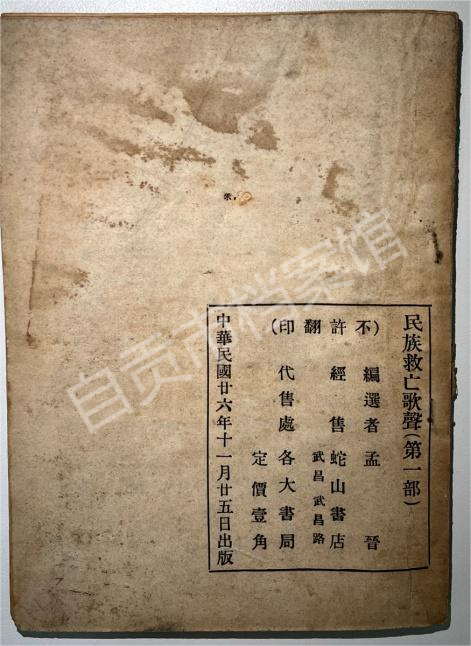 民族救亡歌聲（第一部）
（不許翻印）
編選者 孟晉
經售 蛇山書店
武昌 武昌路
代售處 各大書局
定價壹角
中華民國廿六年十一月廿五日出版
自贡市档案馆